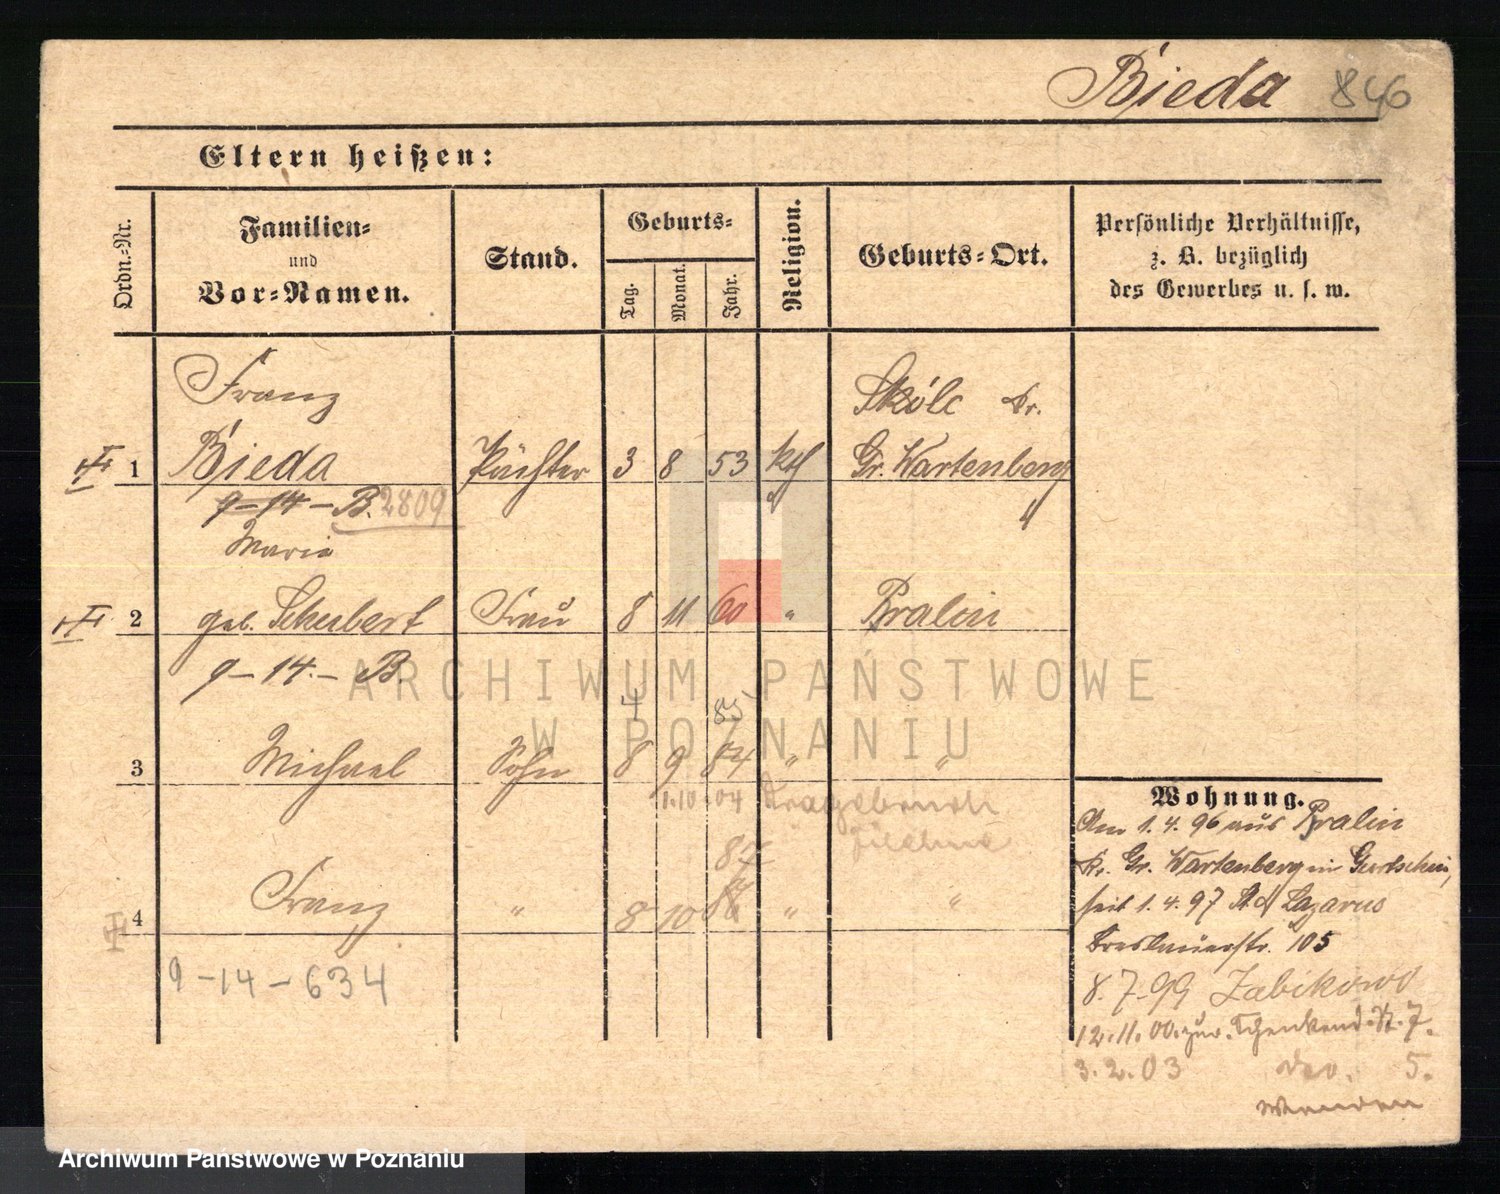 Bieda 846
Eltern heißen:
Ordn.-Nr.
Familien-
und
Vor-Namen.
Stand.
Geburts-
Tag.
Monat.
Jahr.
Religion.
Geburts-Ort.
Persönliche Verhältnisse,
z. B. bezüglich
des Gewerbes u. s. w.
Franz
1 Bieda Pächter 3 8 53 kth
Skólc Kr.
Gr. Wartenberg
9-14-B. 2809
Maria
2 geb. Schubert Frau 8 11 60 " Pralin
9-14.-B.
4 85
3 Michael Sohn 8 9 84 " "
1.10.04
87
4 Franz " 8 10 " "
9-14-634
Wohnung.
Am 1.4.96 aus Pralin
Kr. Gr. Wartenberg in
seit 1.4.97 St. Lazarus
Breslauerstr. 105
8.7.99 Zabikowo
12.11.00. zur. Schenkend. St. 7.
3.2.03 5.
wenden
ARCHIWUM PAŃSTWOWE
W POZNANIU
Archiwum Państwowe w Poznaniu